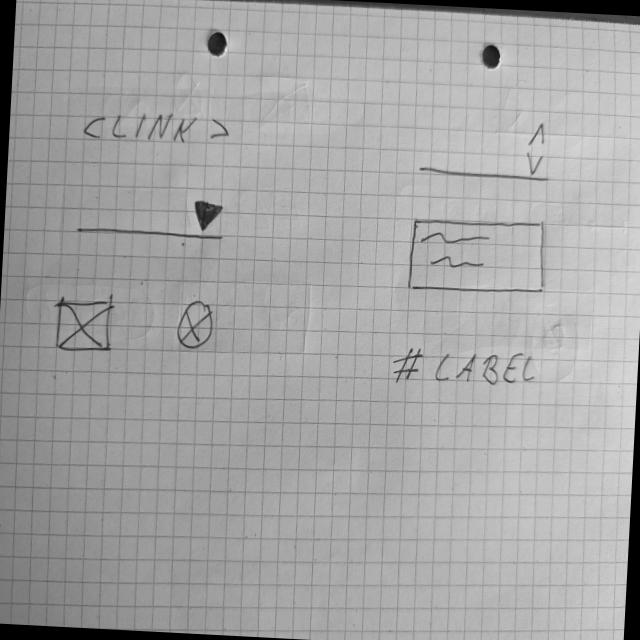 <LINK>
#LABEL